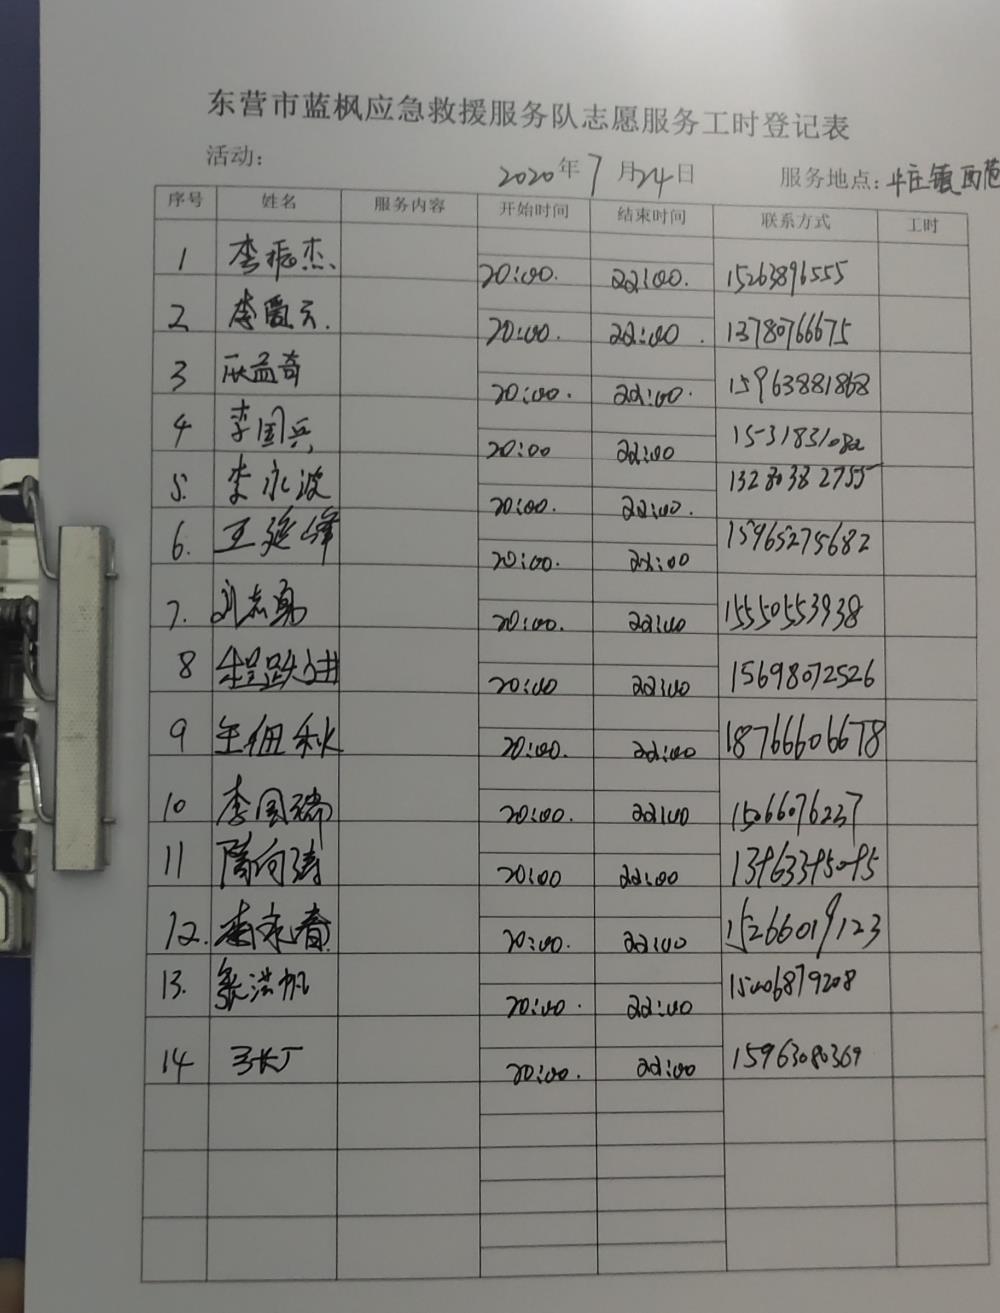 东营市蓝枫应急救援服务队志愿服务工时登记表
活动: 2020年7月24日 服务地点:牛庄镇西范
序号 姓名 服务内容 开始时间 结束时间 联系方式 工时
1 李振杰 20:00 22:00 15263896555
2 李爱云 20:00 22:00 13780766675
3 益奇 20:00 22:00 15963881868
4 李国兵 20:00 22:00
5 李永波 20:00 22:00 13280382755
6 王延峰 20:00 22:00 15965275682
7 刘志勇 20:00 22:00 15550553938
8 程跃进 20:00 22:00 15698072526
9 王佃秋 20:00 22:00 18766606678
10 李国瑞 20:00 22:00 15066076237
11 隋向涛 20:00 22:00
12 李永春 20:00 22:00 15266019123
13 张洪帆 20:00 22:00 15006879208
14 20:00 22:00 15963080369